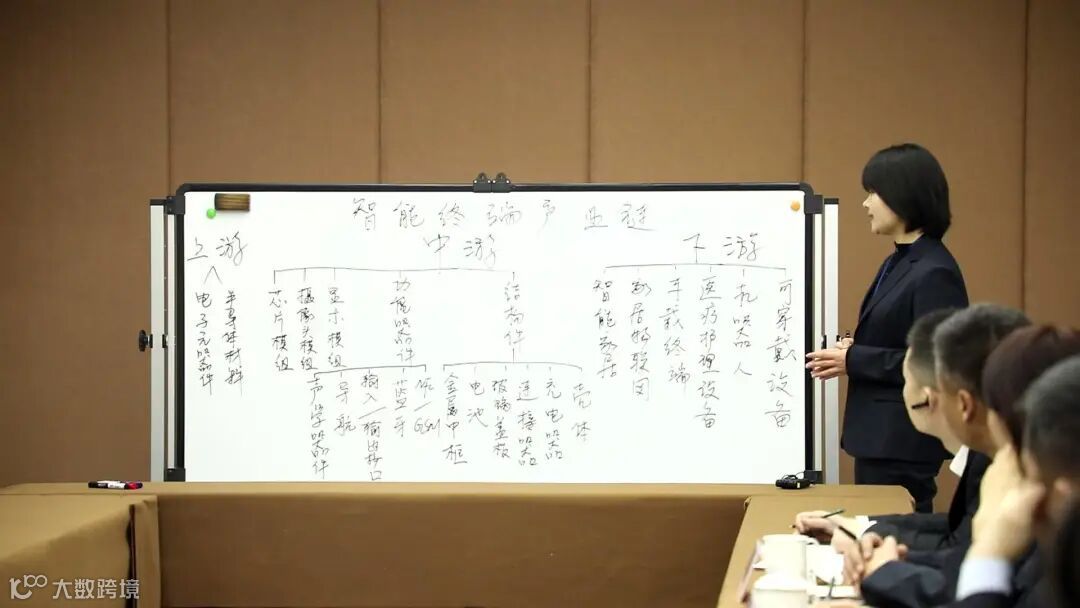 智能终端产业链
上游
中游
下游
电子元器件
半导体材料
芯片模组
摄像头模组
显示模组
功能器件
结构件
声学器件
导航
输入/输出接口
蓝牙
/GSM
金属中框
电池
玻璃盖板
连接器
充电器
壳体
智能家居
车载终端
医疗护理设备
机器人
可穿戴设备
大数跨境